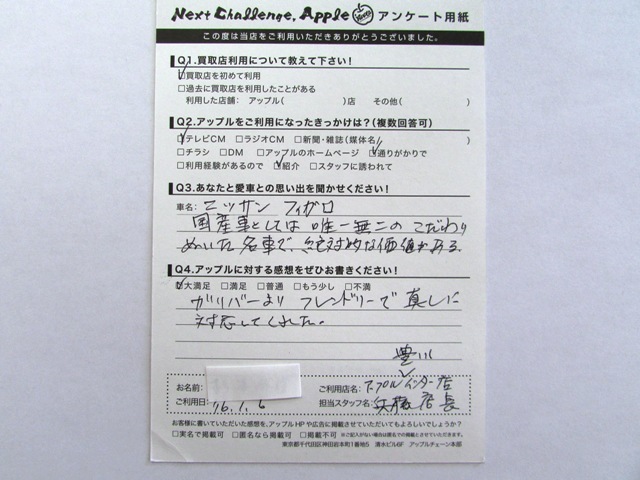 Next Challenge. Apple アンケート用紙
この度は当店をご利用いただきありがとうございました。
Q1.買取店利用について教えて下さい!
□買取店を初めて利用
□過去に買取店を利用したことがある
利用した店舗: アップル( )店 その他( )
Q2.アップルをご利用になったきっかけは?(複数回答可)
□テレビCM □ラジオCM □新聞・雑誌(媒体名 )
□チラシ □DM □アップルのホームページ □通りがかりで
□利用経験があるので □紹介 □スタッフに誘われて
Q3.あなたと愛車との思い出を聞かせください!
車名: ニッサン フィガロ
国産車としては唯一無二のこだわり
ぬいた名車で、絶対的な価値がある。
Q4.アップルに対する感想をぜひお書きください!
□大満足 □満足 □普通 □もう少し □不満
ガリバーより フレンドリーで真しに
対応してくれた。
豊川
お名前: ご利用店名: アップルインター店
ご利用日: 16.1.6 担当スタッフ名: 店長
お客様に書いていただいた感想を、アップルHPや広告に掲載させていただいてもよろしいでしょうか?
□実名で掲載可 □匿名なら掲載可 □掲載不可 ※ご記入がない場合は匿名での掲載とさせていただきます。
東京都千代田区神田岩本町1番地5 清水ビル6F アップルチェーン本部